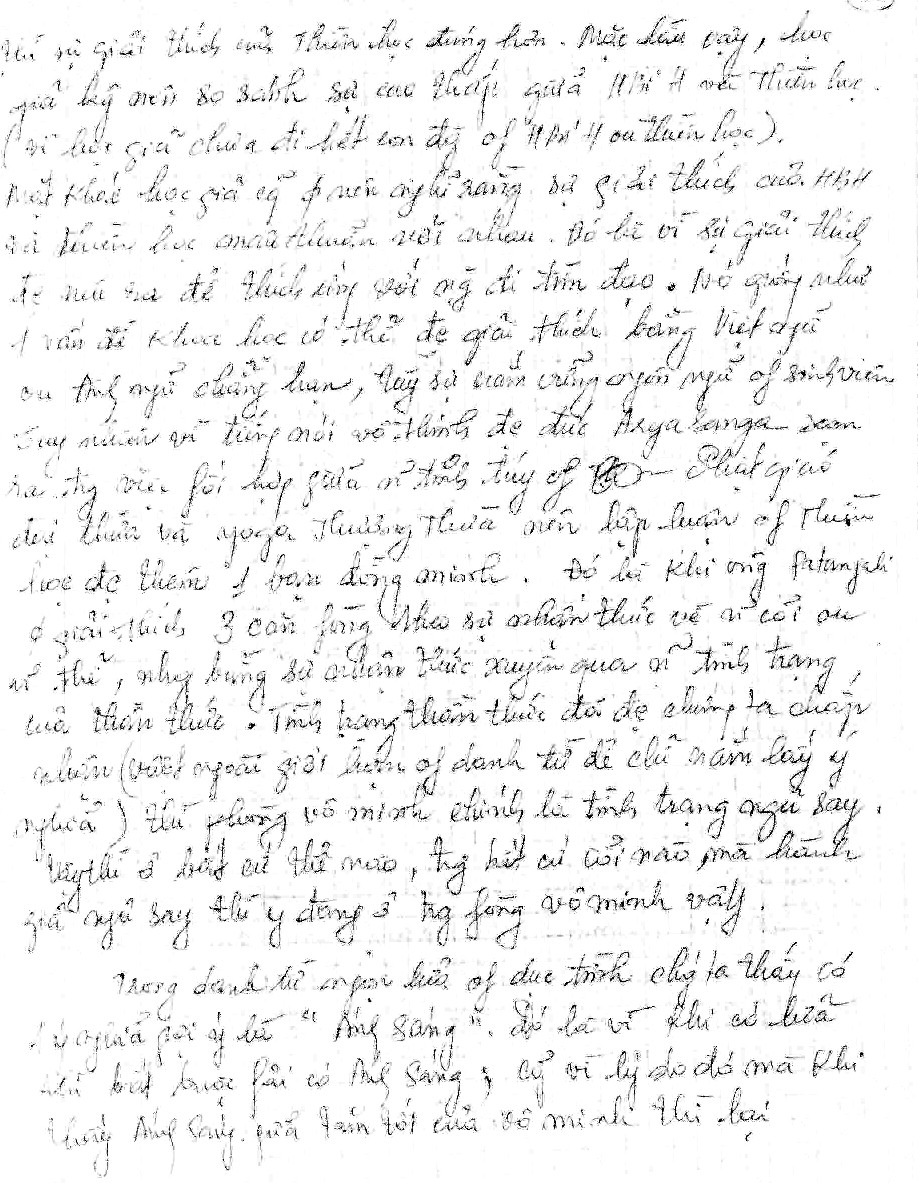 thì sự giải thích của Thiền học đúng hơn. Mặc dầu vậy, học
giả kỵ nên so sánh sự cao thấp giữa HBH và Thiền học.
(vì học giả chưa đi hết con đg of HBH ou thiền học).
Mặt khác học giả cũg ɸ nên nghĩ rằng sự giải thích của HBH
và thiền học mâu thuẫn với nhau. Đó là vì sự giải thích
đc nêu ra để thích ứng với ng đi tìm đạo. Nó giống như
1 vấn đề khoa học có thể đc giải thích bằng Việt ngữ
ou Anh ngữ chẳng hạn, tùy sự nắm vững ngôn ngữ of sinh viên
Tuy nhiên vì tiếng nói vô thinh đc đức Aryasanga soạn
ra trg việc fối hợp giữa n~ tinh túy of Phật giáo
đại thừa và yoga Thượng Thừa nên lập luận of Thiền
học đc thêm 1 bạn đồng minh. Đó là khi ông Patanjali
ɸ giải thích 3 căn fòng theo sự nhận thức về n~ cõi ou
n~ thể, nhg bằng sự nhận thức xuyên qua n~ tình trạng
của thần thức. Tình trạng thần thức đó đc chúng ta chấp
nhận (vượt ngoài giới hạn of danh từ để chỉ nắm lấy ý
nghĩa) thì phòng vô minh chính là tình trạng ngủ say.
Vậy thì ở bất cứ thể nào, trg bất cứ cõi nào, mà hành
giả ngủ say thì y đang ở trg fòng vô minh vậy.
Trong danh từ ngọn lửa of dục tình chg ta thấy có
1 ý nghĩa gợi ý là "Ánh Sáng". Đó là vì khi có lửa
bắt buộc fải có Ánh Sáng; cũg vì lý do đó mà khi
thấy Ánh Sáng giữa tăm tối của vô minh thì lại